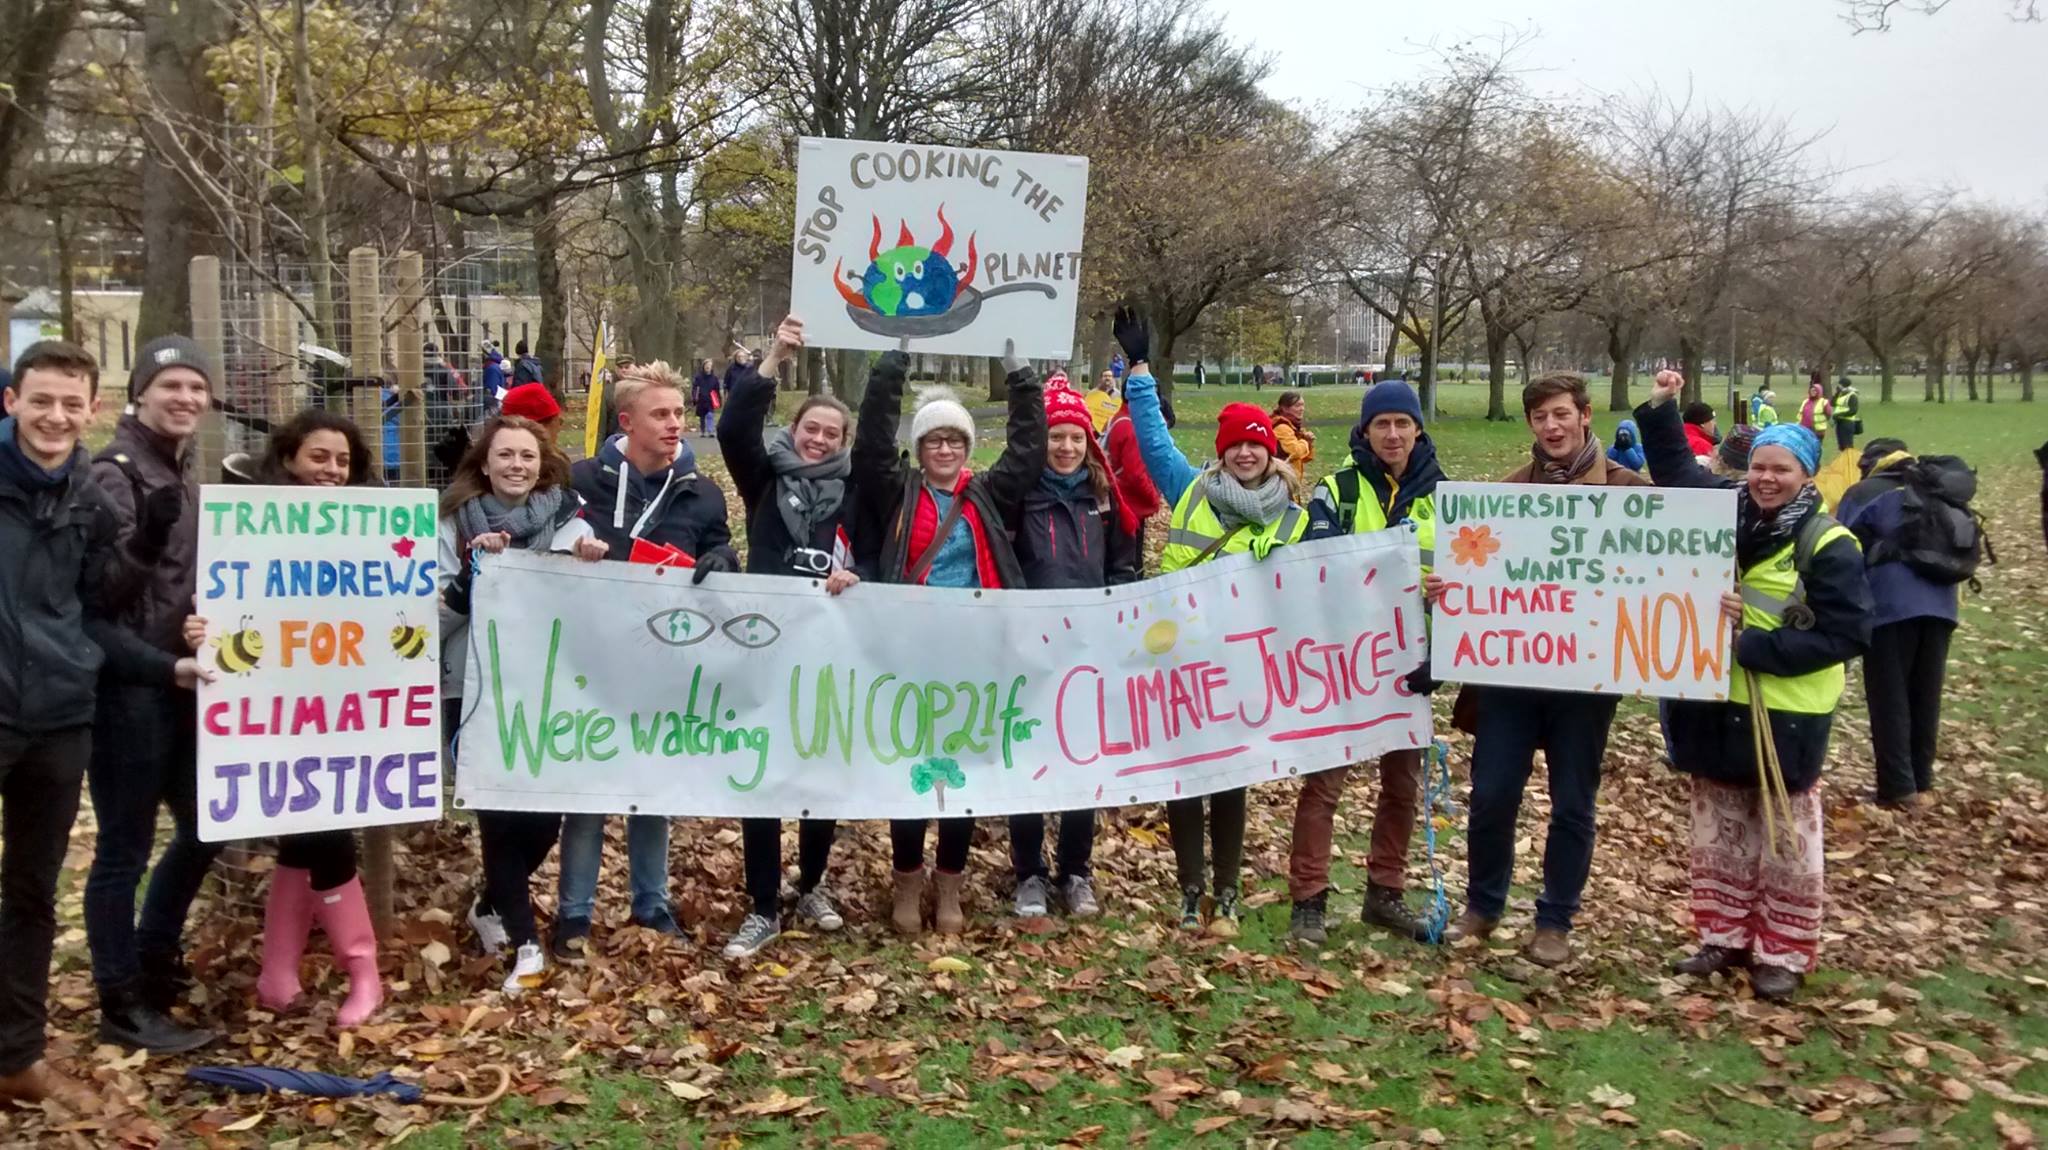 STOP COOKING THE
PLANET
TRANSITION
ST ANDREWS
FOR
CLIMATE
JUSTICE
We're watching UN COP21 for CLIMATE JUSTICE!
UNIVERSITY OF
ST ANDREWS
WANTS...
CLIMATE
ACTION NOW